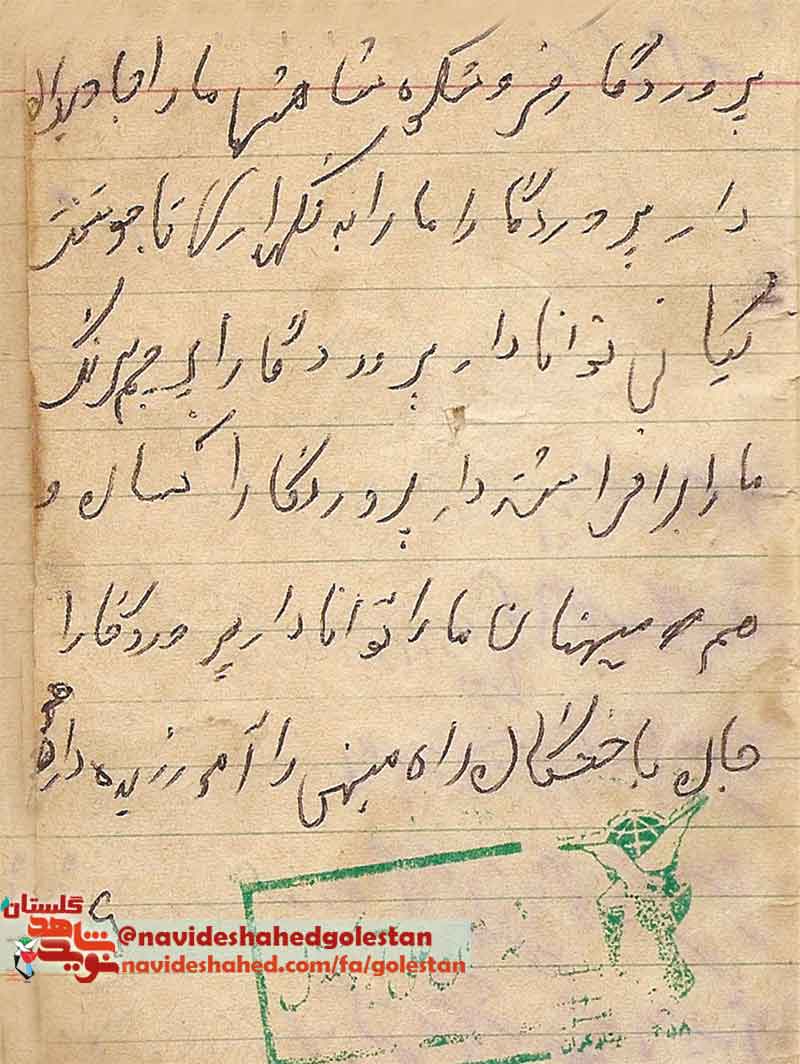 پروردگارا فروشکوه شاهنشها ما را جاویدان
دار پروردگارا ما را به نگهداری تاج و تخت
کیانی توانا دار پروردگارا پرچم سه رنگ
ما را برافراشته دار پروردگارا کسان و
هم میهنان ما را توانا دار پروردگارا
جان باختگان راه میهن را آمرزیده دار
گلستان
نوید شاهد
@navideshahedgolestan
navideshahed.com/fa/golestan